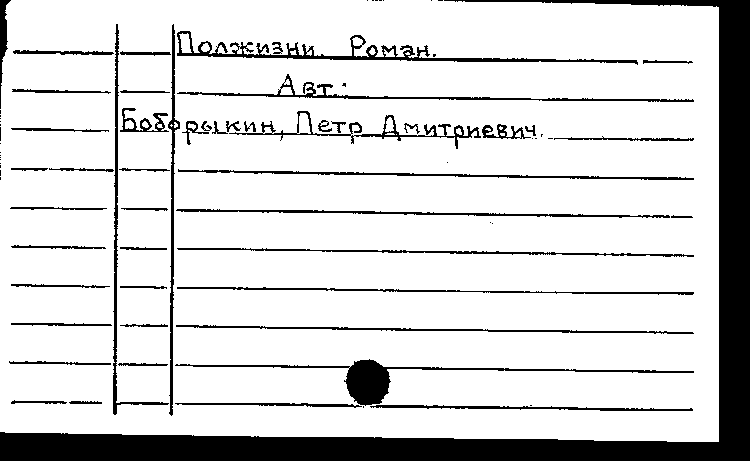 Полжизни. Роман.
Авт.:
Боборыкин, Петр Дмитриевич.